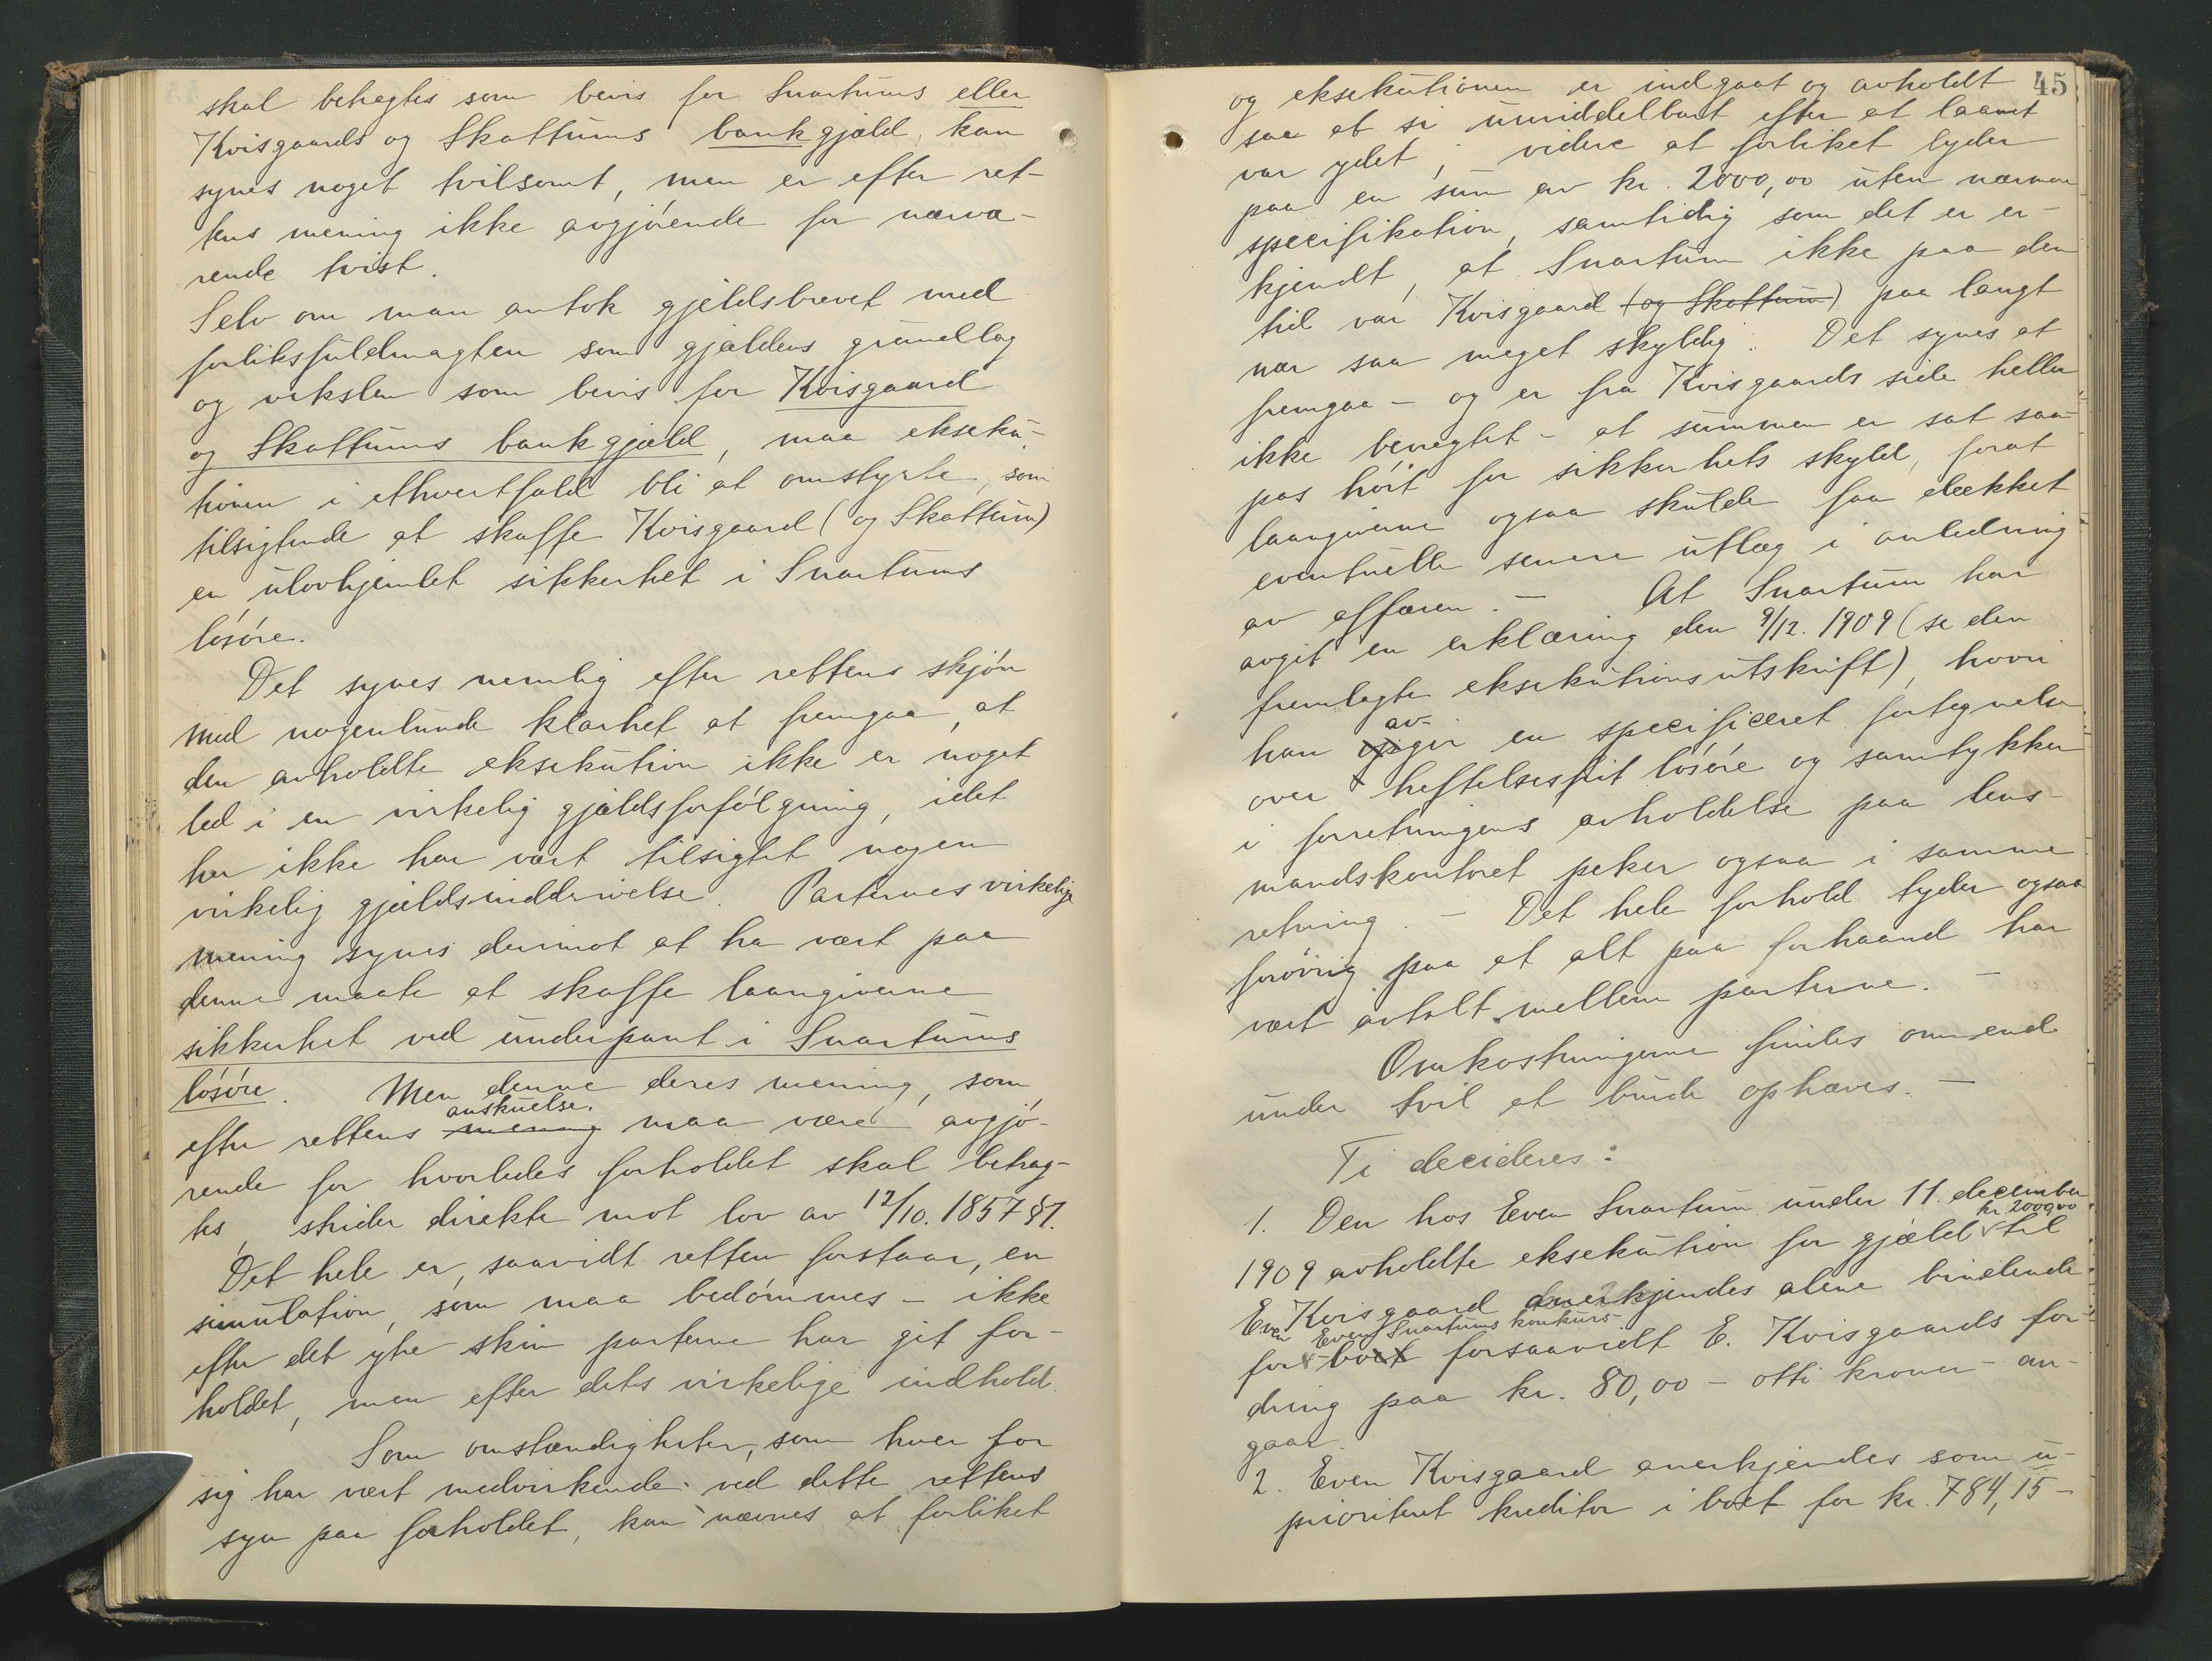 skal betragtes som bevis for Snartums eller
Kvisgaards og Skattums bankgjæld, kan
synes noget tvilsomt, men er efter ret-
tens mening ikke avgjörende for nærvæ-
rende tvist.
Selv om man antok gjeldsbrevet med
forliksfuldmagten som gjældens grundlag
og vekslen som bevis for Kvisgaard
og Skattums bankgjæld, maa ekseku-
tionen i ethvertfald bli at omstyrte, som
tilsigtende at skaffe Kvisgaard (og Skattum)
en ulovhjemlet sikkerhet i Snartums
lösöre.
Det synes nemlig efter rettens skjön
med nogenlunde klarhet at fremgaa, at
den avholdte eksekution ikke er noget
led i en virkelig gjældsforfölgning, idet
her ikke har vært tilsigtet nogen
virkelig gjældsinddrivelse. Parternes virkelige
mening synes derimot at ha vært paa
denne maate at skaffe laangiverne
sikkerhet ved underpant i Snartums
lösöre. Men denne deres mening, som
anskuelse.
efter rettens mening maa være avgjö-
rende for hvorledes forholdet skal betrag-
tes, strider direkte mot lov av 12/10. 1857 §1.
Det hele er, saavidt retten forstaar, en
simulation, som maa bedömmes - ikke
efter det ytre skin parterne har git for-
holdet, men efter dets virkelige indhold.
Som omstændigheter, som hver for
sig har vært medvirkende ved dette rettens
syn paa forholdet, kan nævnes at forliket
45
og eksekutionen er indgaat og avholdt
saa at si umiddelbart efter at laanet
var ydet; videre at forliket lyder
paa en sum av kr. 2000,00 uten nærmere
specifikation, samtidig som det er er-
kjendt, at Snartum ikke paa den
tid var Kvisgaard (og Skattum) paa langt
nær saa meget skyldig. Det synes at
fremgaa - og er fra Kvisgaards side heller
ikke benegtet - at summen er sat saa-
pas höit for sikkerhets skyld, forat
laangiverne ogsaa skulde faa dækket
eventuelle senere utlæg i anledning
av affæren. - At Snartum har
avgit en erklæring den 9/12. 1909 (se den
fremlagte eksekutionsutskrift), hvori
av-
han opgir en specificeret fortegnelse
over heftelsesfrit lösöre og samtykker
i forretningens avholdelse paa lens-
mandskontoret peker ogsaa i samme
retning. - Det hele forhold tyder ogsaa
forövrig paa at alt paa forhaand har
vært avtalt mellem parterne. -
Omkostningerne findes om end
under tvil at burde ophæves. -
Ti decideres:
1. Den hos Even Snartum under 11. december
kr. 2000,00
1909 avholdte eksekution for gjæld til
Even Kvisgaard anerkjendes alene bindende
Even Snartums konkurs-
for boet forsaavidt E. Kvisgaards for-
dring paa kr. 80,00 - otti kroner - an-
gaar
2. Even Kvisgaard anerkjendes som u-
prioritert kreditor i boet for kr. 784,15 -